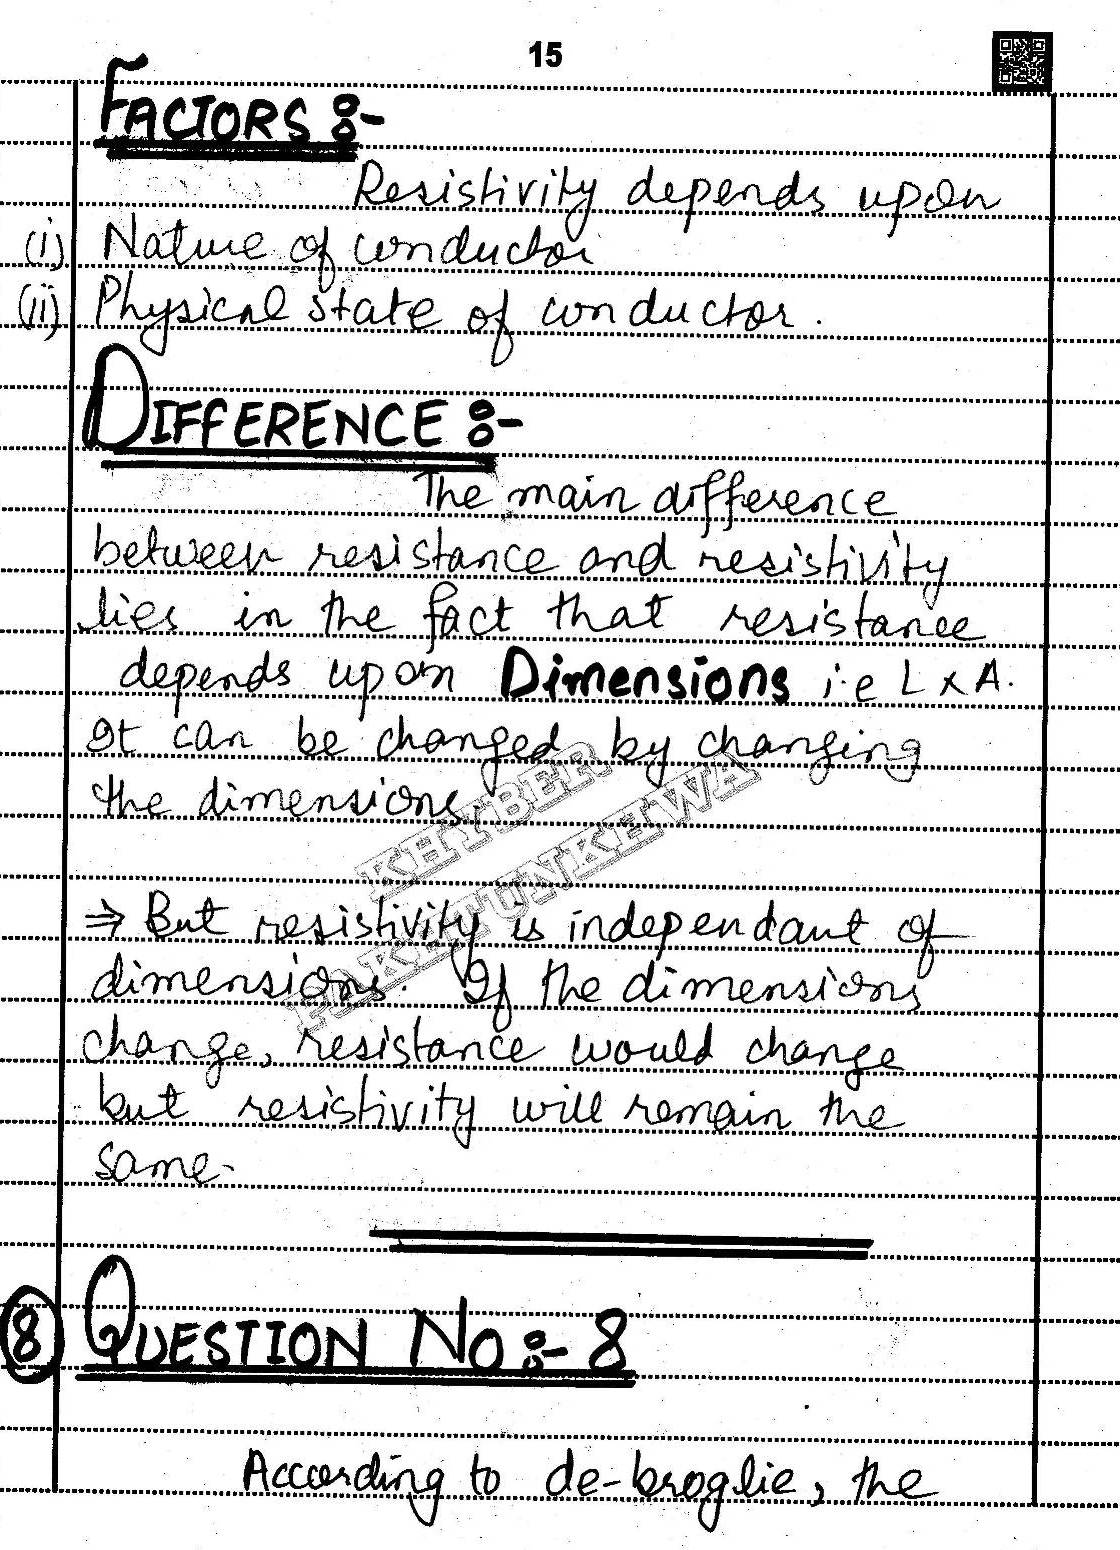 15
FACTORS :-
Resistivity depends upon
(i) Nature of conductor
(ii) Physical state of conductor.
DIFFERENCE :-
The main difference
between resistance and resistivity
lies in the fact that resistance
depends upon Dimensions i.e L x A.
It can be changed by changing
the dimensions.
KHYBER
PAKHTUNKHWA
⇒ But resistivity is independant of
dimensions. If the dimensions
change, resistance would change
but resistivity will remain the
same.
8 QUESTION NO :- 8
According to de-broglie, the